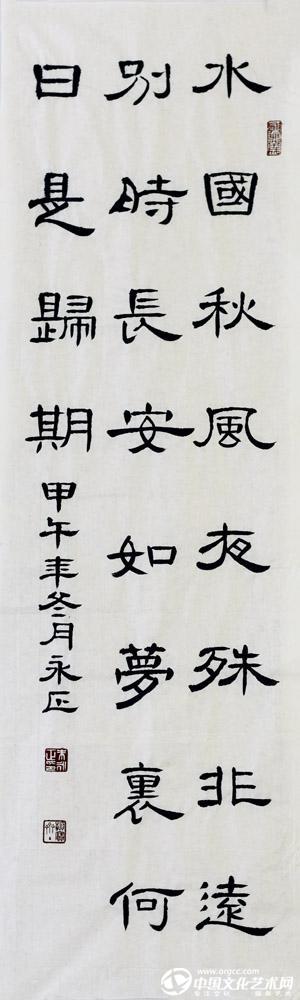 水國秋風夜殊非遠
別時長安如夢裏何
日是歸期
甲午年冬月永正
www.orgcc.com
中国文化艺术网